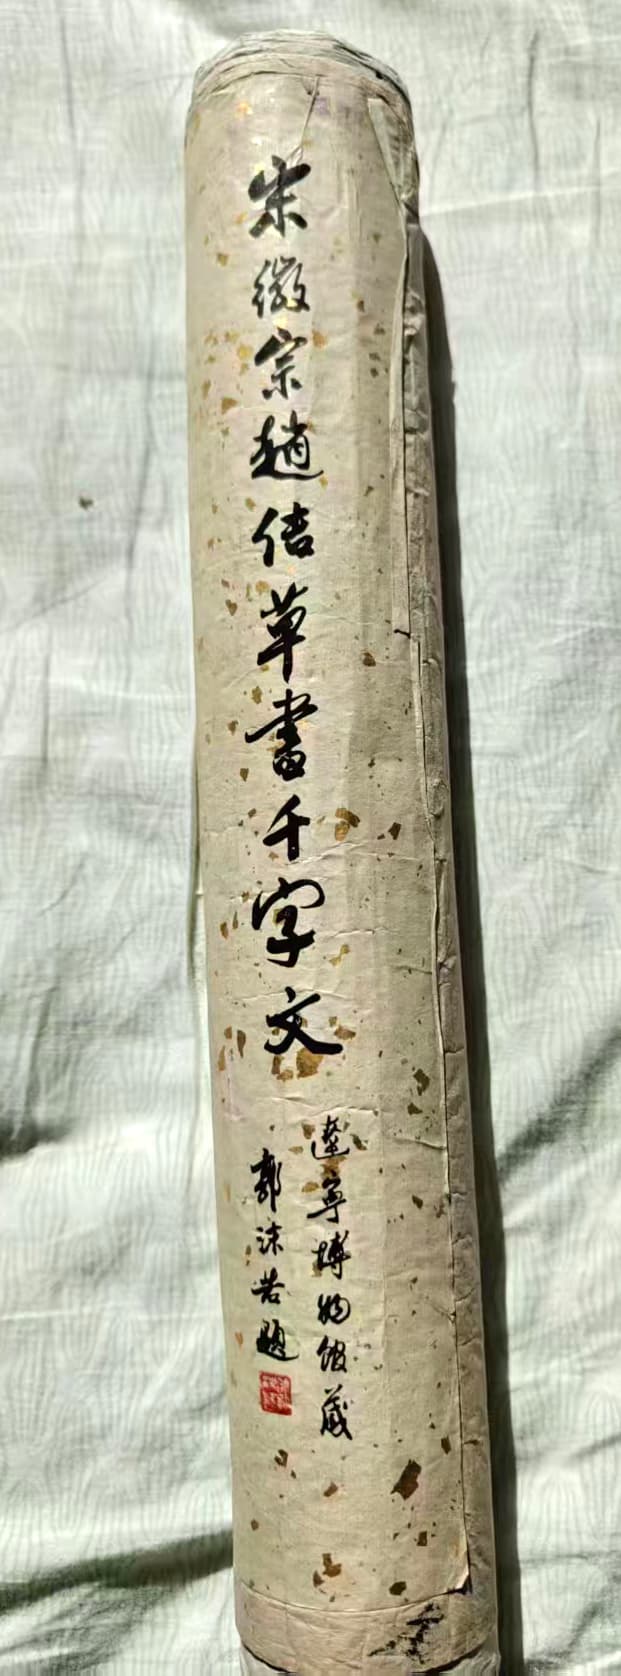 宋徽宗趙佶草書千字文
遼寧博物館藏
郭沫若題